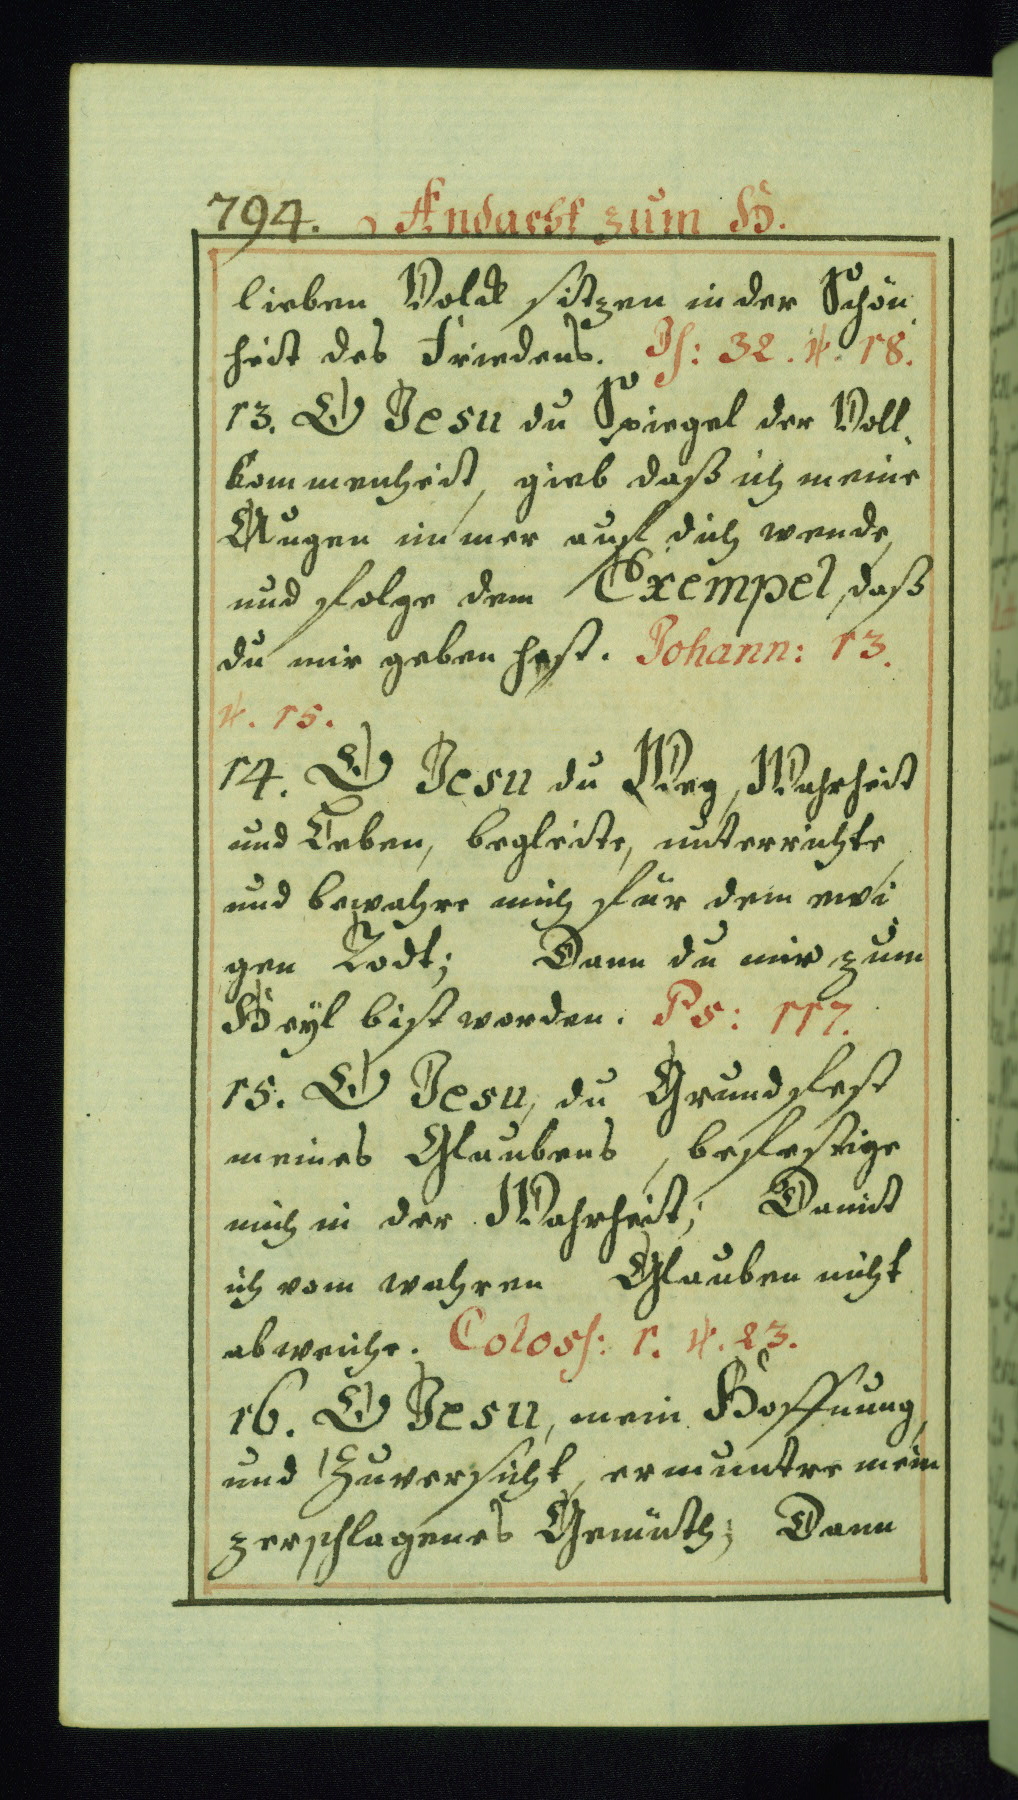 794. Andacht zum H.
lieben Volck sitzen in der Schön
heit des Friedens. Js: 32. ꝟ. 18.
13. O Jesu du Spiegel der Voll„
kommenheit, gieb daß ich meine
Augen immer auf dich wende,
und folge dem Exempel, daß
du mir geben hast. Johann: 13.
ꝟ. 15.
14. O Jesu du Weg, Wahrheit
und Leben, begleite, unterrichte,
und bewahre mich für dem ewi
gen Todt; Dann du mir zum
Heÿl bist worden. Ps: 117.
15. O Jesu, du Grundfest
meines Glaubens, befestige
mich in der Wahrheit; Damit
ich vom wahren Glauben nicht
abweiche. Coloss: 1. ꝟ. 23.
16. O Jesu, mein Hoffnung,
und Zuversicht, ermuntre mein
zerschlagenes Gemüth; Dann